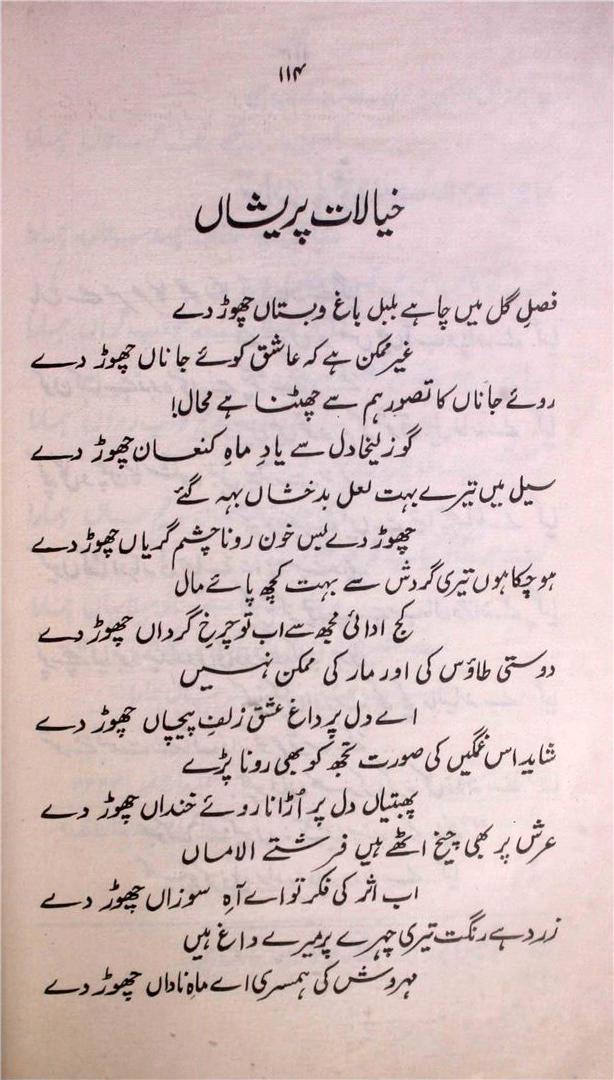 ۱۱۴
خیالات پریشاں
فصلِ گل میں چاہے بلبل باغ و بستاں چھوڑ دے
غیر ممکن ہے کہ عاشق کوئے جاناں چھوڑ دے
روئے جاناں کا تصور ہم سے چھٹنا ہے محال!
گو زلیخا دل سے یادِ ماہِ کنعاں چھوڑ دے
سیل میں تیرے بہت لعل بدخشاں بہہ گئے
چھوڑ دے بس خون رونا چشم گریاں چھوڑ دے
ہو چکا ہوں تیری گردش سے بہت کچھ پائے مال
کج ادائی مجھ سے اب تو چرخِ گرداں چھوڑ دے
دوستی طاؤس کی اور مار کی ممکن نہیں
اے دل پر داغ عشق زلفِ پیچاں چھوڑ دے
شاید اس غمگیں کی صورت تجھ کو بھی رونا پڑے
پھبتیاں دل پر اُڑانا روئے خنداں چھوڑ دے
عرش پر بھی چیخ اٹھے ہیں فرشتے الاماں
اب اثر کی فکر تو اے آہِ سوزاں چھوڑ دے
زرد ہے رنگت تیری چہرے پر میرے داغ ہیں
مہروش کی ہمسری اے ماہِ ناداں چھوڑ دے